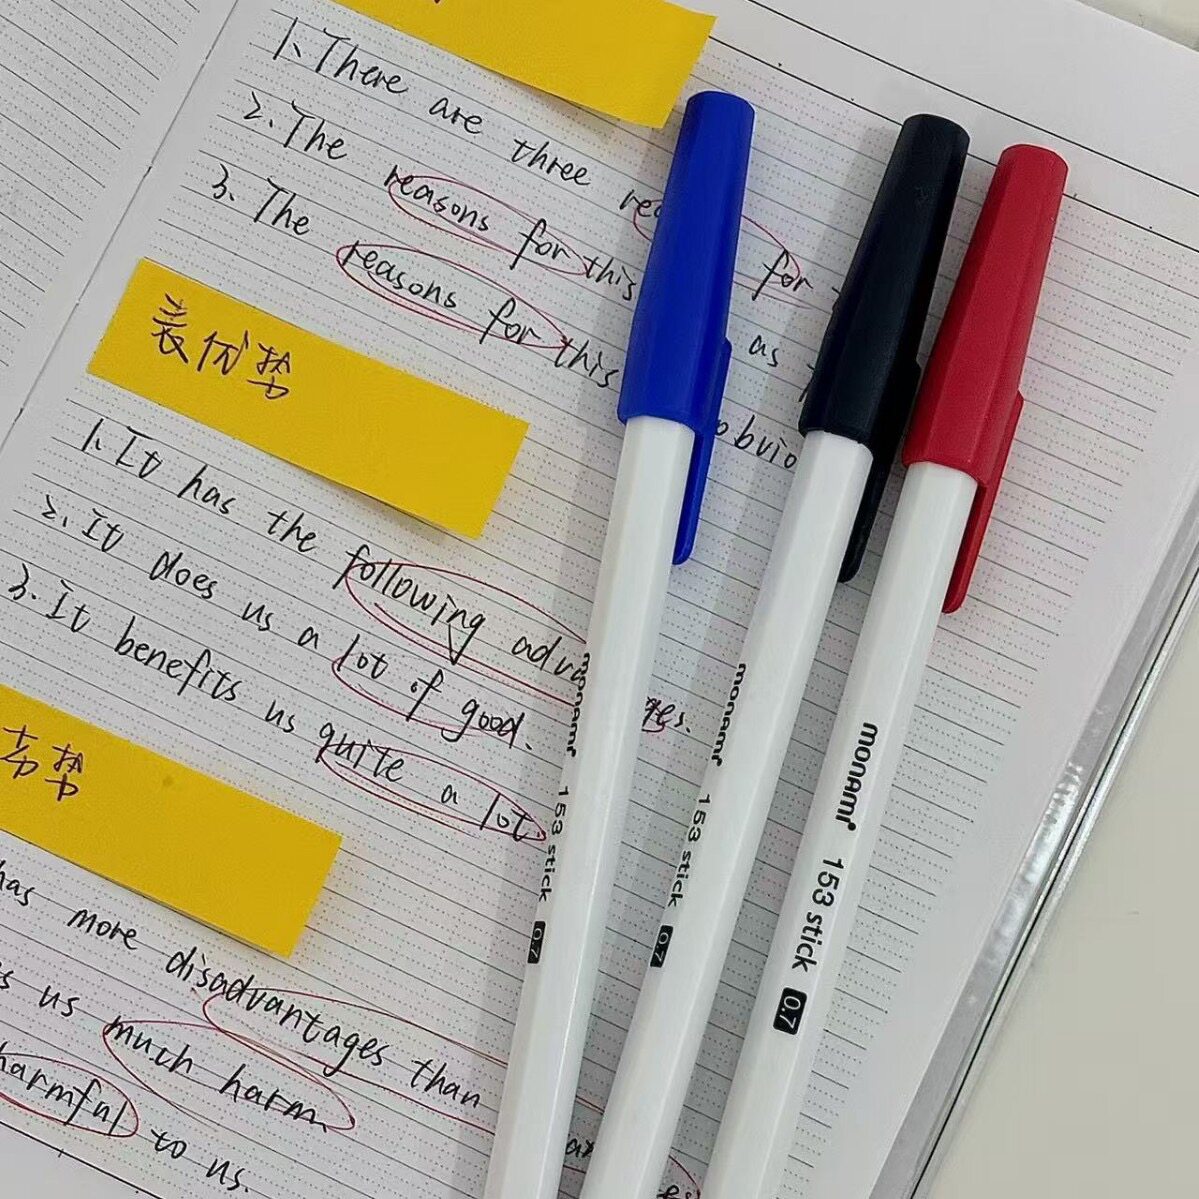 1、There are three for
2. The reasons for this as
3. The reasons for this obvio
表优势
1. It has the following adva ges.
2. It does us a lot of good.
3. It benefits us quite a lot.
劣势
has more disadvantages than
us much harm
harmful to us.
monami 153 stick 0.7
monami 153 stick 0.7
monami 153 stick 0.7